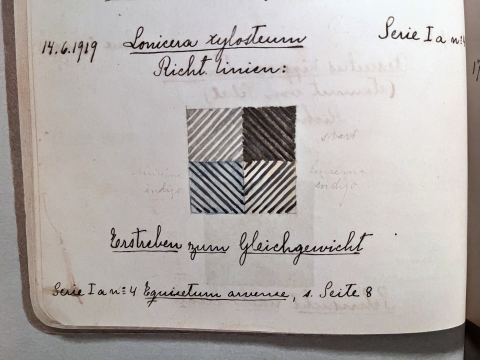 14.6.1919 Lonicera xylosteum Serie I a n=4
Richt. linien:
Erstreben zum Gleichgewicht
Serie I a n=4 Equisetum arvense, s. Seite 8